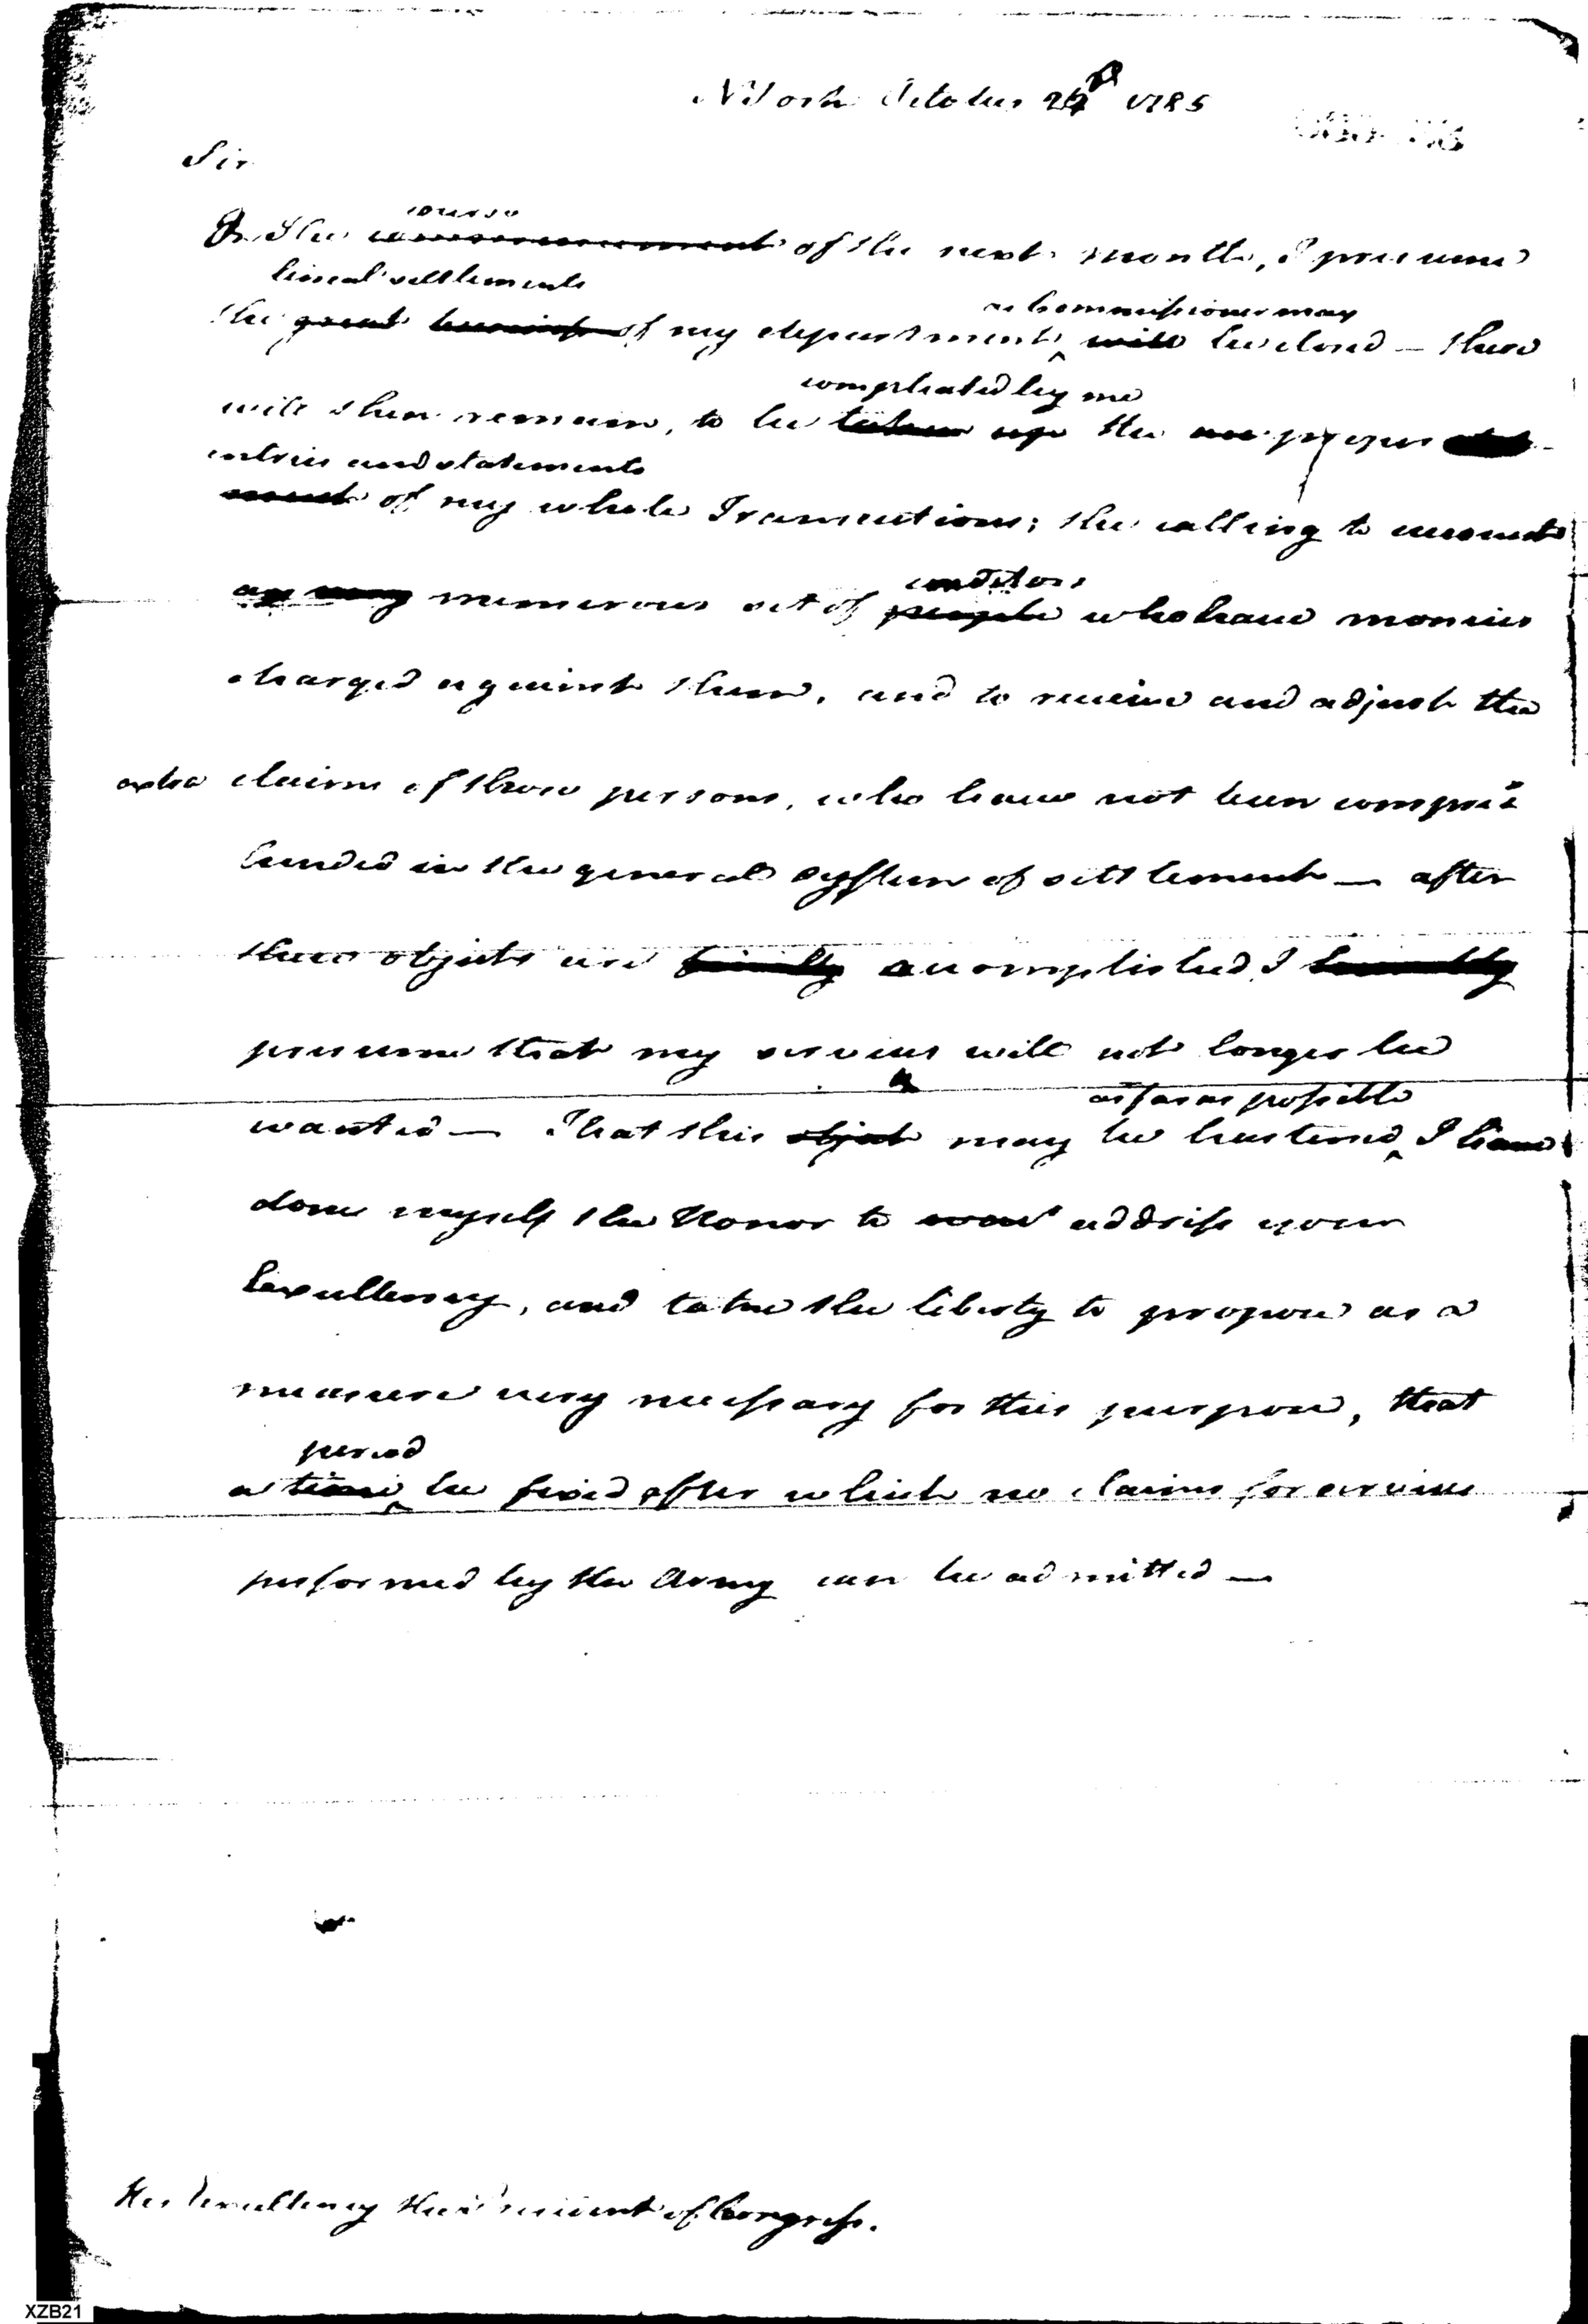 NYork October 24 1785
Sir
course
In the commencement of the next month, I presume
lineal settlements
as Commissioner may
the great business of my department will be closed — there
compleated by me
will then remain, to be taken up the proper
entries and statements
of my whole Transactions; the calling to account
a very numerous set of people who have monies
charged against them, and to receive and adjust the
extra claims of those persons, who have not been compre
hended in the general system of settlement — after
these objects are finally accomplished, I humbly
presume that my services will not longer be
as far as possible
wanted — That this object may be hastened, I have
done myself the Honor to now address your
Excellency, and take the liberty to propose as a
measure very necessary for this purpose, that
period
a time be fixed after which no claims for services
performed by the Army can be admitted —
His Excellency the President of Congress.
XZB21